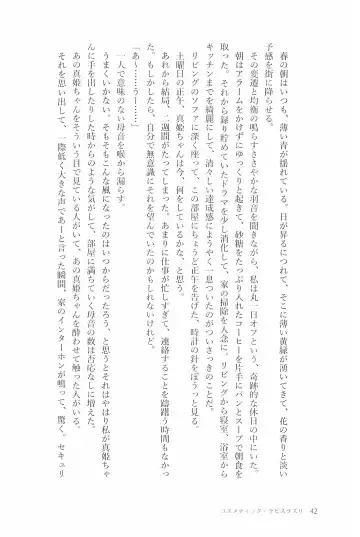 春の朝はいつも、薄い青が揺れている。日が昇るにつれて、そこに薄い黄緑が湧いてきて、花の香りと淡い
予感を街に降らせる。
その変遷と均衡の鳴らすささやかな羽音を聞きながら、私は丸一日オフという、奇跡的な休日の中にいた。
朝はアラームをかけずにゆっくりと起きて、砂糖をたっぷり入れたコーヒーを片手にパンとスープで朝食を
取った。それから録り貯めていたドラマを少し消化して、家の掃除を入念に。リビングから寝室、浴室から
キッチンまでを綺麗にして、清々しい達成感にようやく一息ついたのがついさっきのことだ。
リビングのソファに深く座って、この部屋にちょうど正午を告げた、時計の針をぼうっと見る。
土曜日の正午、真姫ちゃんは今、何をしているかな、と思う。
あれから結局、二週間がたってしまった。あまりに仕事が忙しすぎて、連絡することを躊躇う時間もなかっ
た。もしかしたら、自分で無意識にそれを望んでいたのかもしれないけれど。
「あ〜……うー……」
一人で意味のない母音を喉から漏らす。
うまくいかない。そもそもこんな風になったのはいつからだったろう、と思うとそれはやはり私が真姫ちゃ
んに手を出したりした時からのような気がして、部屋に満ちていく母音の数は否応なしに増えた。
あの真姫ちゃんをそういう目で見ている人がいて、あの真姫ちゃんを酔わせて触った人がいる。
それを思い出して、一際低く大きな声であーと言った瞬間、家のインターホンが鳴って、驚く。セキュリ
コスメティック・ラピスラズリ 42